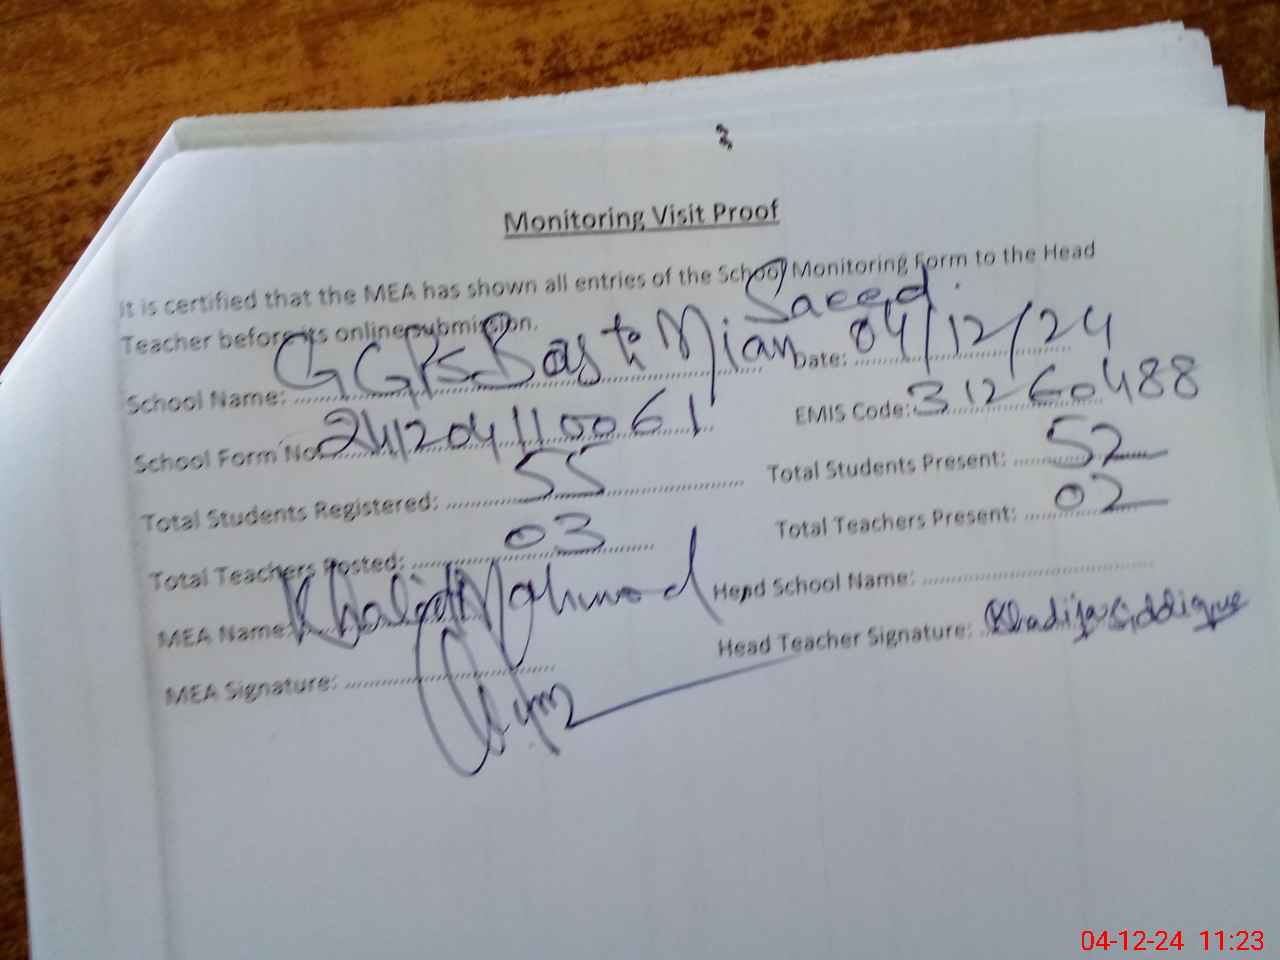 Monitoring Visit Proof
It is certified that the MEA has shown all entries of the School Monitoring Form to the Head
Teacher before its online submission.
School Name: GGPS Basti Mian Saeed Date: 04/12/24
School Form No: 241204110061 EMIS Code: 31260488
Total Students Registered: 55 Total Students Present: 52
Total Teachers Posted: 03 Total Teachers Present: 02
MEA Name: Khalid Mahmood Head School Name:
MEA Signature: Head Teacher Signature: Khadija Siddique
04-12-24 11:23